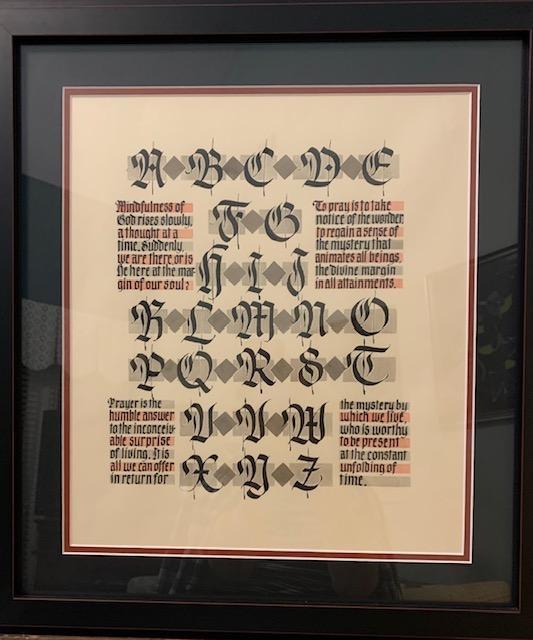 A B C D E
Mindfulness of
God rises slowly,
a thought at a
time. Suddenly,
we are there, or is
He here at the mar-
gin of our soul?
F G
H I J
To pray is to take
notice of the wonder,
to regain a sense of
the mystery that
animates all beings,
the divine margin
in all attainments.
K L M N O
P Q R S T
Prayer is the
humble answer
to the inconceiv-
able surprise
of living. It is
all we can offer
in return for
U V W
X Y Z
the mystery by
which we live,
who is worthy
to be present
at the constant
unfolding of
time.